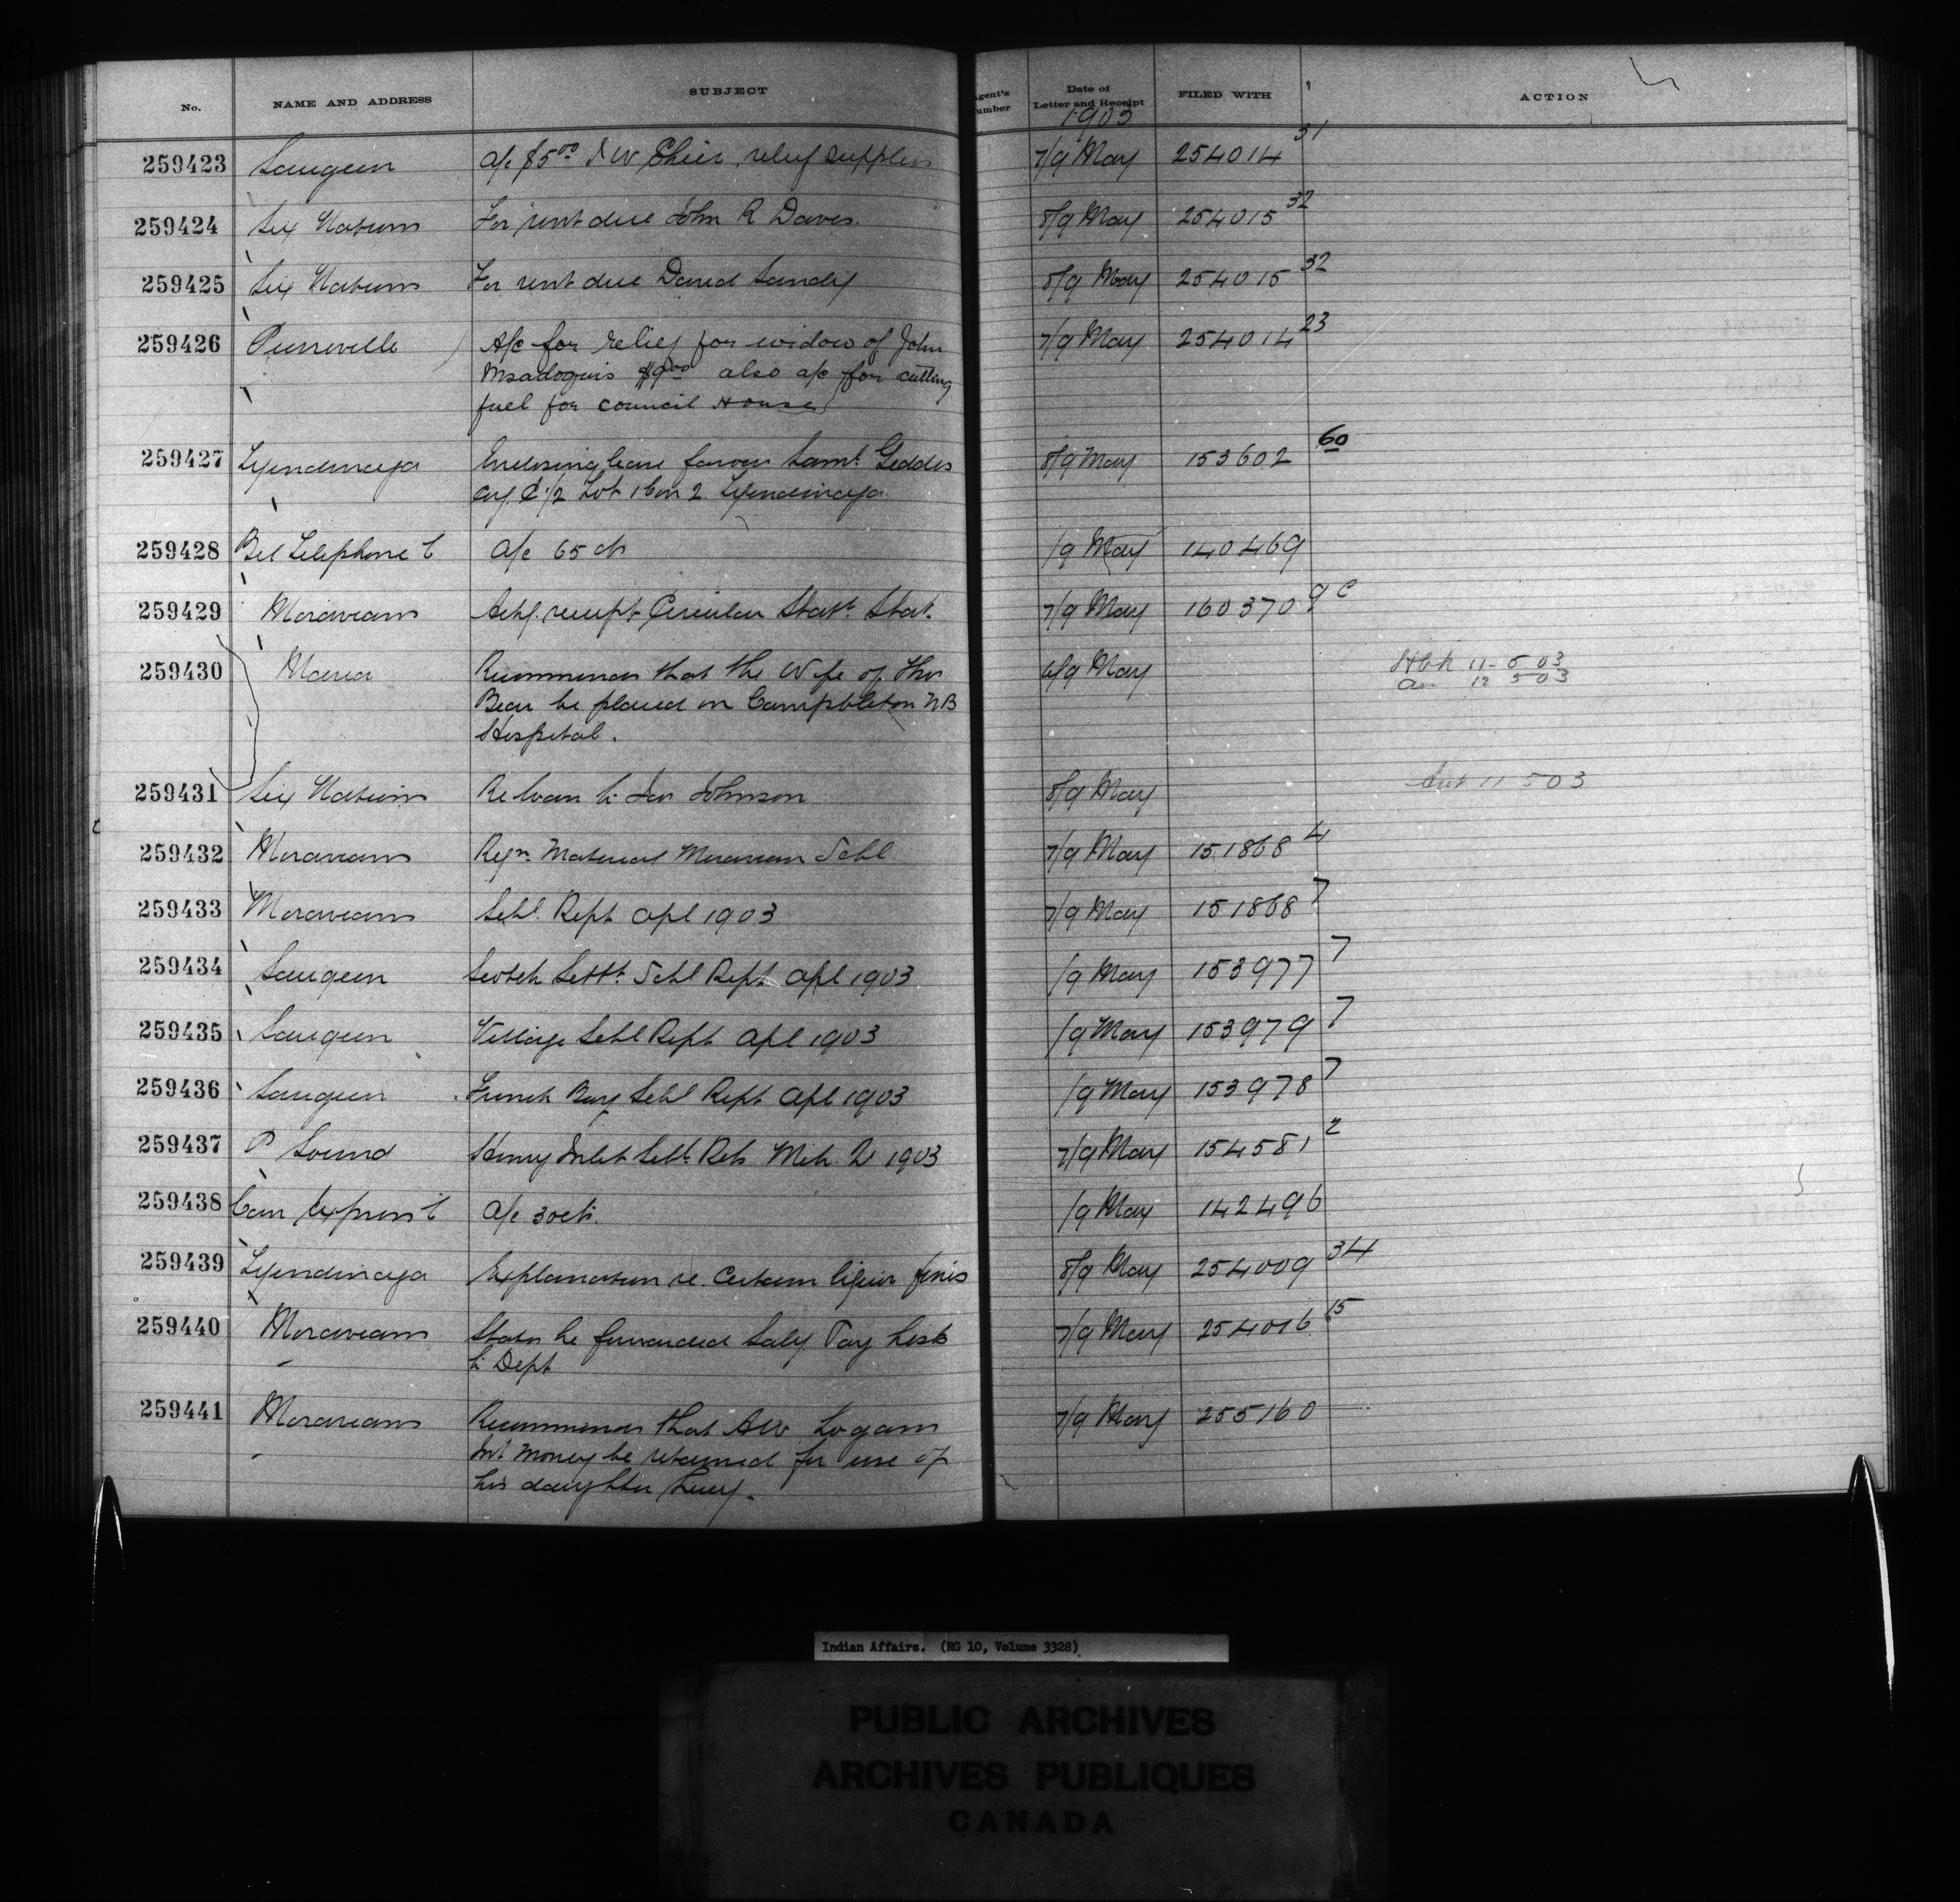 No. NAME AND ADDRESS SUBJECT Agent's Number Date of Letter and Receipt FILED WITH ACTION
1903
259423 Saugeen a/c $5.00 D W relief supplies 7/9 May 254014 31
259424 Six Nations For rent due John R Davis. 8/9 May 254015 32
259425 Six Nations For rent due David Sandy 8/9 May 254015 32
259426 Pierreville A/c for relief for widow of John 7/9 May 254014 23
Msadoquis $9.00 also a/c for cutting
fuel for council House
259427 Tyendinaga Enclosing lease favour Saml. Geddes 8/9 May 153602 60
1/2 Lot 1 Con 2 Tyendinaga
259428 Bel Telephone C a/c 65 cts /9 May 140469
259429 Moravians Ackg. receipt Circular Statl. Stat. 7/9 May 160370 9c
259430 Maria Recommends that the Wife of Thos 6/9 May 11-5 03
Bear be placed in Campbleton NB 12 5 03
Hospital.
259431 Six Nations Re loan to Johnson 8/9 May 11 5 03
259432 Moravians Reqn. Material Moravian Schl 7/9 May 151868 4
259433 Moravians Schl. Rept Apl 1903 7/9 May 151868 7
259434 Saugeen Scotch Settt. Schl Rept Apl 1903 /9 May 153977 7
259435 Saugeen Village Schl Rept Apl 1903 /9 May 153979 7
259436 Saugeen French Bay Schl Rept Apl 1903 /9 May 153978 7
259437 P Sound Henry Inlet Schl Mch. Q 1903 7/9 May 154581 2
259438 Can Express C a/c 30 cts. /9 May 142496
259439 Tyendinaga Explanation re. Certain liquor fines 8/9 May 254009 34
259440 Moravians States he forwarded Saly Pay Lists 7/9 May 254016 15
to Dept
259441 Moravians Recommends that A W Logans 7/9 May 255160
Int Money be retained for use of
his daughter
Indian Affairs. (RG 10, Volume 3328)
PUBLIC ARCHIVES
ARCHIVES PUBLIQUES
CANADA